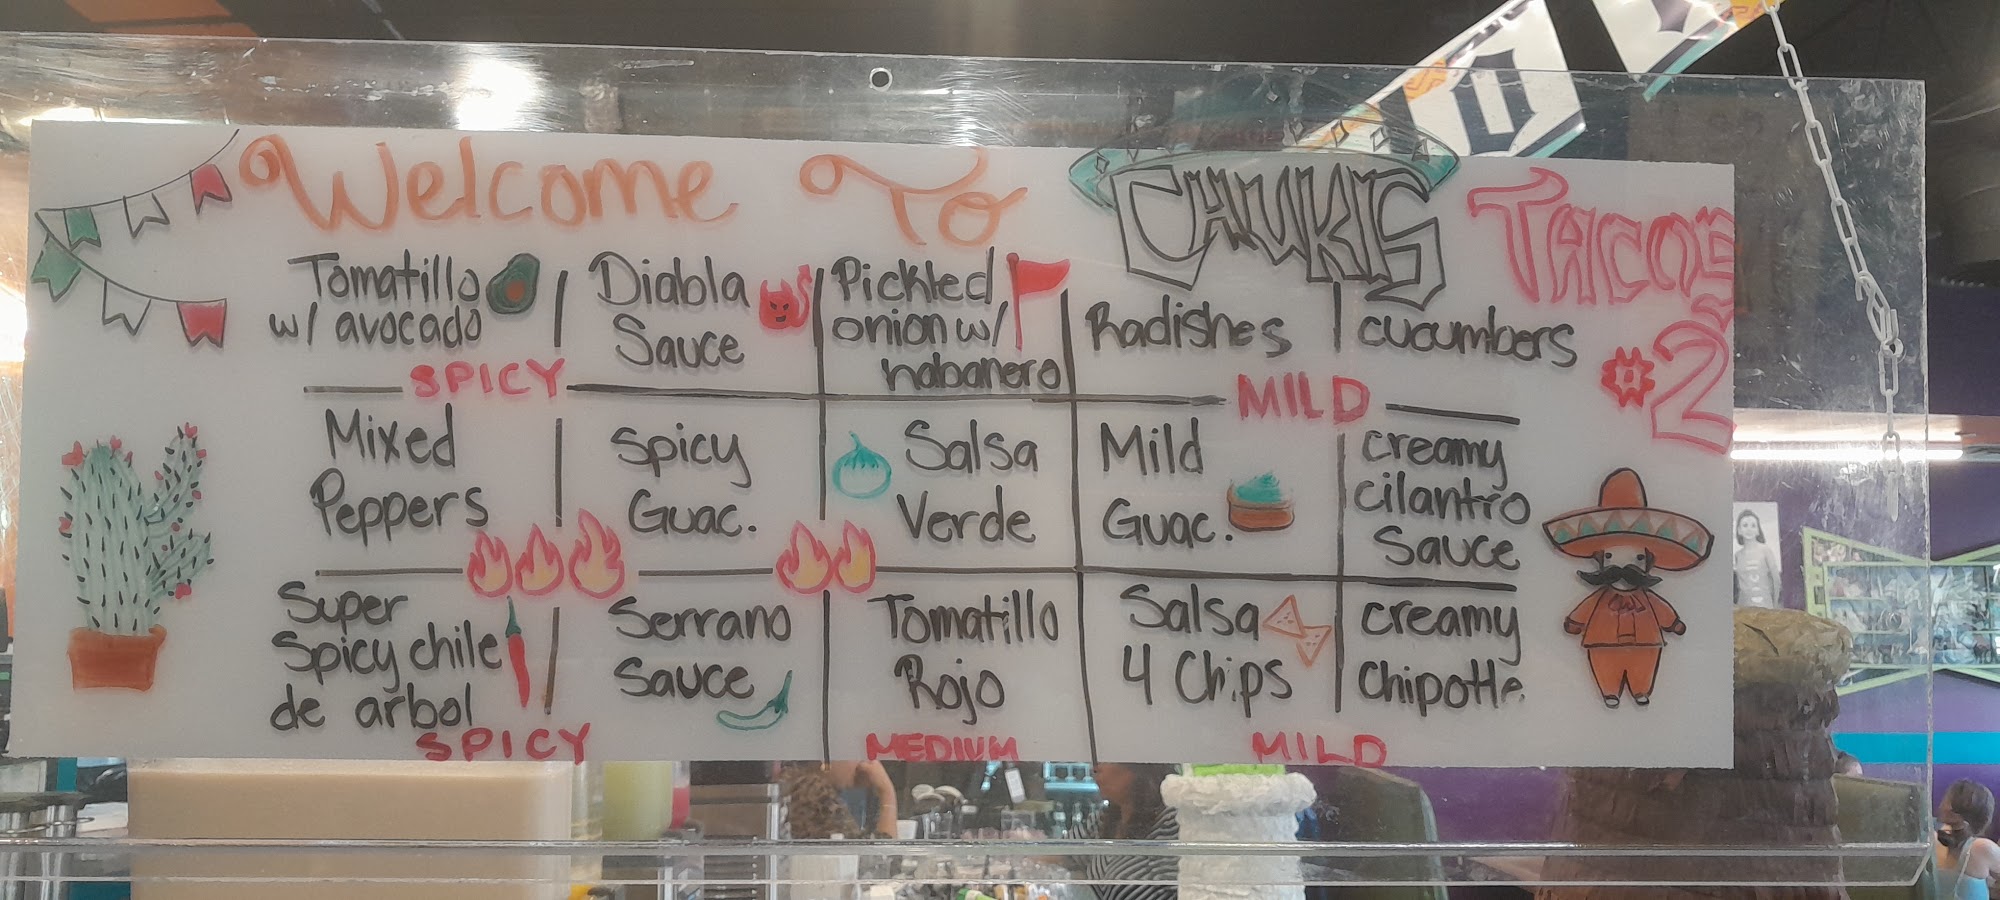 Welcome To CHUKIS TACOS
#2
Tomatillo
w/ avocado
Diabla
Sauce
Pickled
onion w/
habanero
Radishes
cucumbers
SPICY
MILD
Mixed
Peppers
Spicy
Guac.
Salsa
Verde
Mild
Guac.
creamy
cilantro
Sauce
Super
Spicy chile
de arbol
Serrano
Sauce
Tomatillo
Rojo
Salsa
4 Chips
creamy
Chipotle
SPICY
MEDIUM
MILD